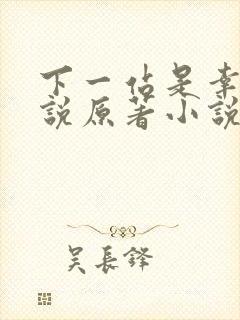 下一站是幸
說原著小說
吳長鋒